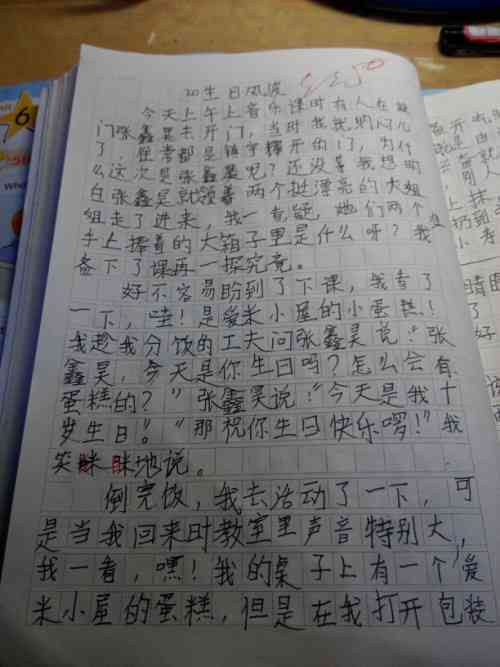 20生日风波
今天上午上音乐课时有人在敲
门张鑫昊去开门,当时我就纳闷儿
了,往常都是镇宇择开的门,为什
么这次是张鑫昊呢?还没等我想明
白张鑫昊就领着两个挺漂亮的大姐
姐走了进来,我一看,她们两个
手上捧着的大箱子里是什么呀?我准
备下了课再一探究竟。
好不容易盼到了下课,我看了
一下,哇!是爱米小屋的小蛋糕!
我趁我分饭的工夫问张鑫昊说:“张
鑫昊,今天是你生日吗?怎么会有
蛋糕的?”张鑫昊说:“今天是我十
岁生日。”“那祝你生日快乐啰!”我
笑眯眯地说。
倒完饭,我去活动了一下,可
是当我回来时教室里声音特别大,
我一看,嘿!我的桌子上有一个爱
米小屋的蛋糕,但是在我打开包装